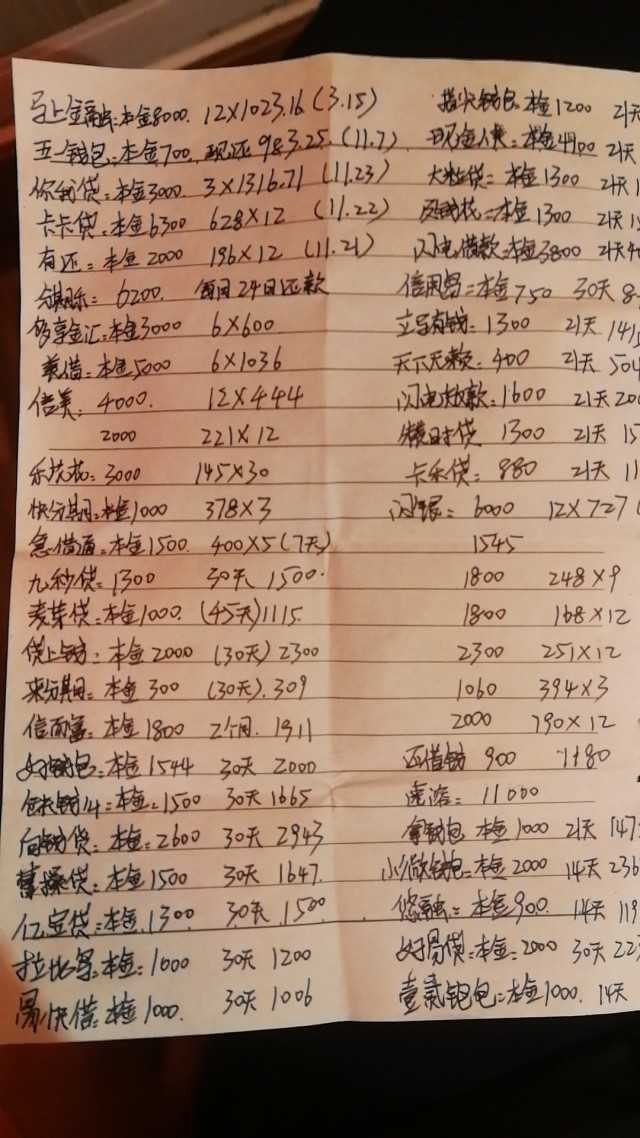 马上金融:本金8000. 12×1023.16(3.15)
五一钱包:本金700, 现还983.25.(11.7)
你我贷:本金3000. 3×1316.71(11.23)
卡卡贷:本金6300 628×12 (11.22)
有还:本金2000 196×12(11.21)
6200. 每月24日还款
金汇:本金3000 6×600
美借:本金5000 6×1036
信美:4000. 12×444
2000 221×12
乐花花:3000 145×30
快分期:本金1000 378×3
急借通:本金1500. 400×5(7天)
九秒贷:1300 30天 1500.
麦芽贷:本金1000. (45天)1115.
贷上钱:本金2000 (30天)2300
来分期:本金300 (30天).309
信而富:本金1800 2个月. 1911
好钱包:本金1544 30天 2000
本金:1500 30天1665
向钱贷:本金:2600 30天2943
本金1500 30天 1647.
亿宝贷:本金1300. 30天.1500
拉比等:本金:1000 30天 1200
易快借:本金1000. 30天 1006
指尖钱包:本金1200 21天
现金人侠:本金4900 21天
大粒贷:本金1300 21天
本金1300 21天
闪电借款:本金3800 21天
信用:本金750 30天
立马有钱:1300 21天 141
400 21天 504
1600 21天
贷 1300 21天
卡乐贷:880 21天
闪银:6000 12×727
1545
1800 248×9
1800 168×12
2300 251×12
1060 394×3
2000 190×12
还借钱 900 1180
11000
拿钱包 本金1000 21天 147
小微钱包:本金2000 14天 236
悠融:本金900. 14天 119
好易贷:本金:2000 30天 22
壹贰钱包:本金1000. 14天